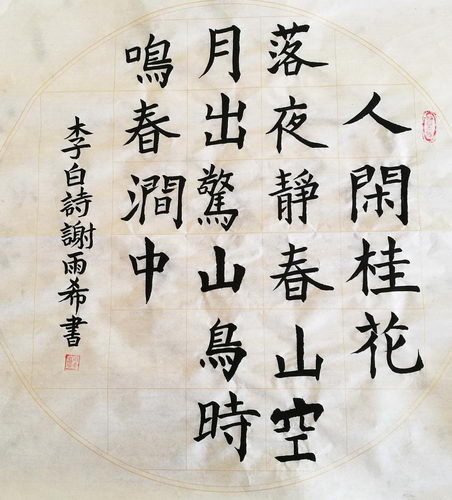 人閑桂花
落夜靜春山空
月出驚山鳥時
鳴春澗中
李白詩謝雨希書